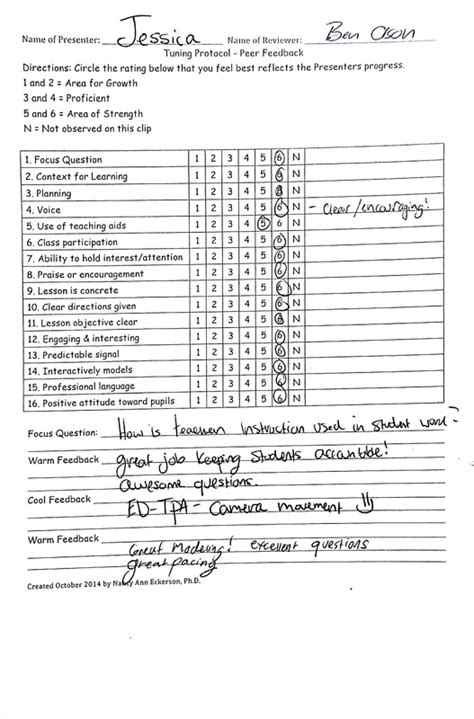 Name of Presenter: Jessica Name of Reviewer: Ben Olson
Tuning Protocol - Peer Feedback
Directions: Circle the rating below that you feel best reflects the Presenters progress.
1 and 2 = Area for Growth
3 and 4 = Proficient
5 and 6 = Area of Strength
N = Not observed on this clip
1. Focus Question 1 2 3 4 5 6 N
2. Context for Learning 1 2 3 4 5 6 N
3. Planning 1 2 3 4 5 6 N
4. Voice 1 2 3 4 5 6 N - Clear/encouraging!
5. Use of teaching aids 1 2 3 4 5 6 N
6. Class participation 1 2 3 4 5 6 N
7. Ability to hold interest/attention 1 2 3 4 5 6 N
8. Praise or encouragement 1 2 3 4 5 6 N
9. Lesson is concrete 1 2 3 4 5 6 N
10. Clear directions given 1 2 3 4 5 6 N
11. Lesson objective clear 1 2 3 4 5 6 N
12. Engaging & interesting 1 2 3 4 5 6 N
13. Predictable signal 1 2 3 4 5 6 N
14. Interactively models 1 2 3 4 5 6 N
15. Professional language 1 2 3 4 5 6 N
16. Positive attitude toward pupils 1 2 3 4 5 6 N
Focus Question: How is teacher instruction used in student work?
Warm Feedback great job keeping students accountable!
awesome questions.
Cool Feedback
ED-TPA - Camera movement
Warm Feedback Great Modeling! excellent questions
great pacing
Created October 2014 by Nancy Ann Eckerson, Ph.D.